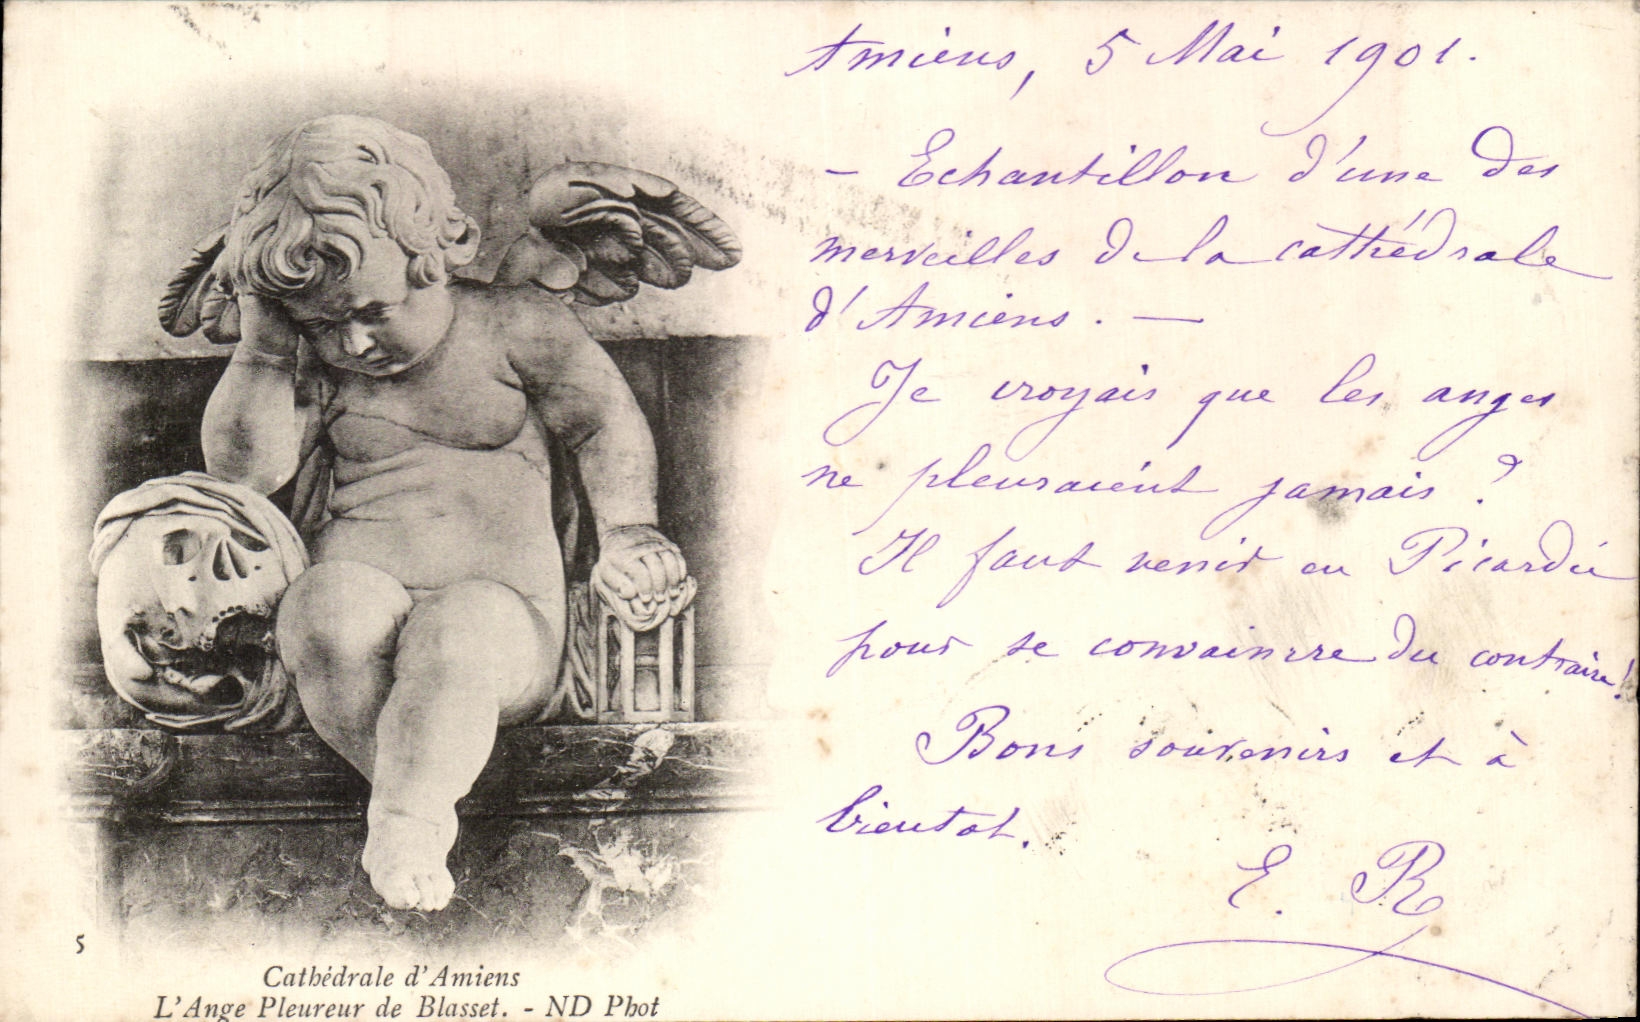 Amiens, 5 Mai 1901.
- Echantillon d'une des
merveilles de la cathédrale
d'Amiens. —
Je croyais que les anges
ne pleuraient jamais ?
Il faut venir en Picardie
pour se convaincre du contraire !
Bons souvenirs et à
bientot.
E. R
5
Cathédrale d'Amiens
L'Ange Pleureur de Blasset. - ND Phot